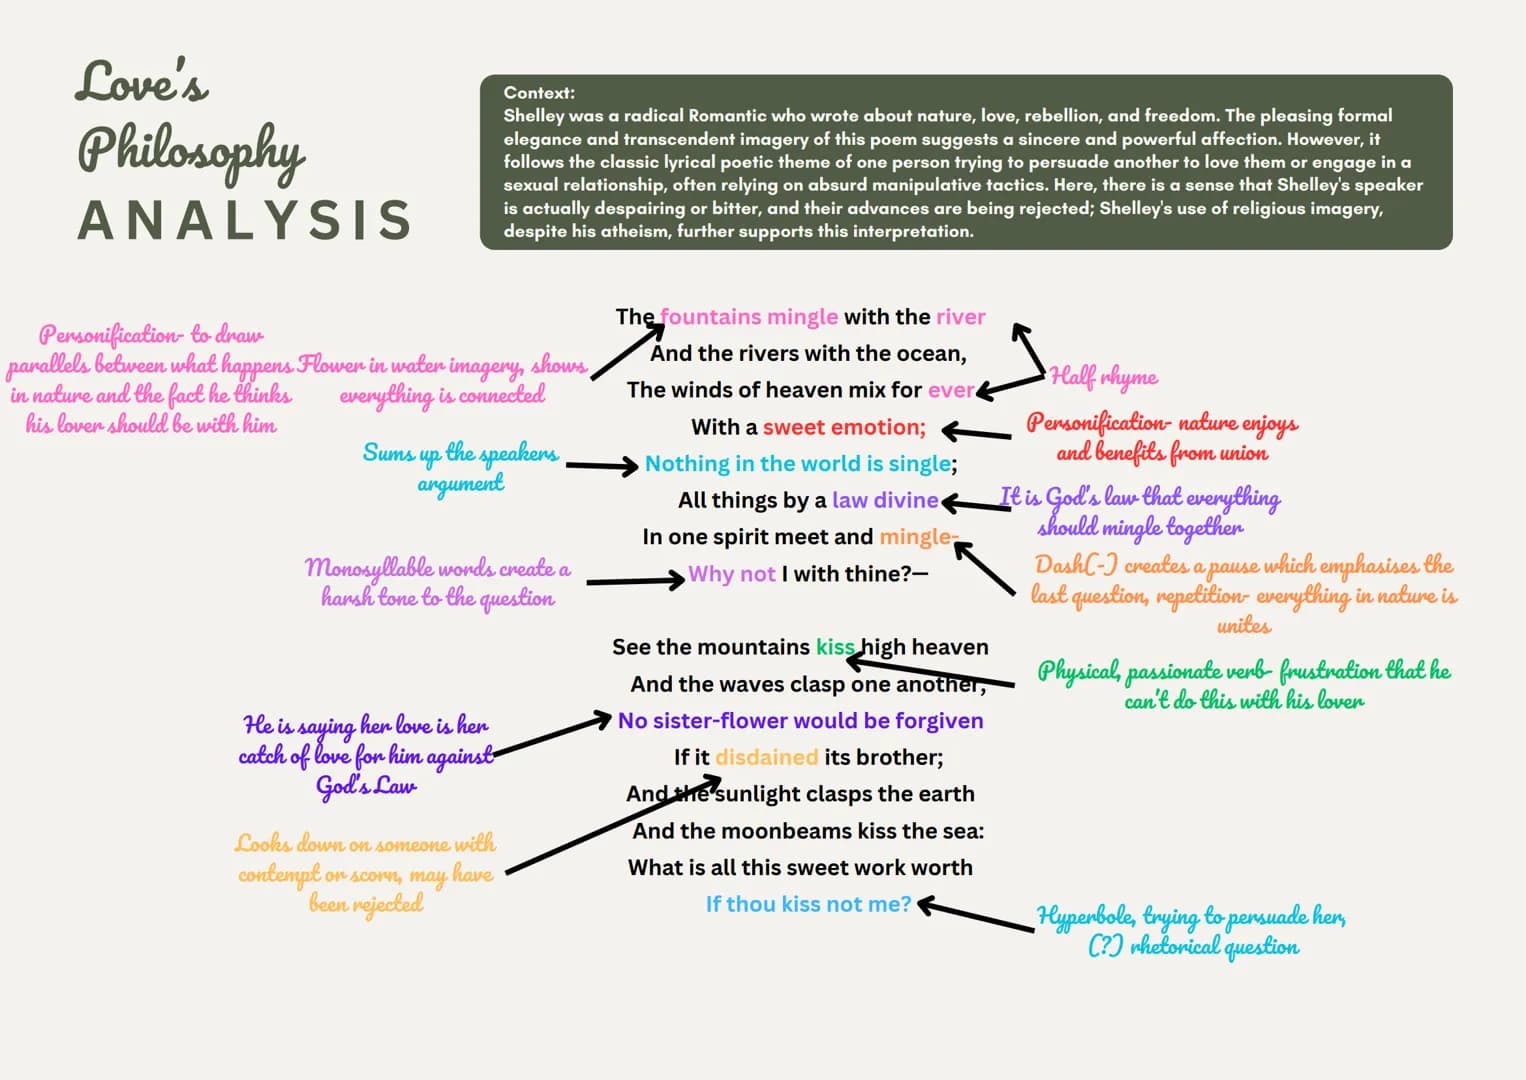 Love's
Philosophy
ANALYSIS
Context:
Shelley was a radical Romantic who wrote about nature, love, rebellion, and freedom. The pleasing formal
elegance and transcendent imagery of this poem suggests a sincere and powerful affection. However, it
follows the classic lyrical poetic theme of one person trying to persuade another to love them or engage in a
sexual relationship, often relying on absurd manipulative tactics. Here, there is a sense that Shelley's speaker
is actually despairing or bitter, and their advances are being rejected; Shelley's use of religious imagery,
despite his atheism, further supports this interpretation.
Personification- to draw
parallels between what happens
in nature and the fact he thinks
his lover should be with him
Flower in water imagery, shows
everything is connected
Sums up the speakers
argument
Monosyllable words create a
harsh tone to the question
He is saying her love is her
catch of love for him against
God's Law
Looks down on someone with
contempt or scorn, may have
been rejected
The fountains mingle with the river
And the rivers with the ocean,
The winds of heaven mix for ever
With a sweet emotion;
Nothing in the world is single;
All things by a law divine
In one spirit meet and mingle-
Why not I with thine?—
See the mountains kiss high heaven
And the waves clasp one another,
No sister-flower would be forgiven
If it disdained its brother;
And the sunlight clasps the earth
And the moonbeams kiss the sea:
What is all this sweet work worth
If thou kiss not me?
Half rhyme
Personification- nature enjoys
and benefits from union
It is God's law that everything
should mingle together
Dash(-) creates a pause which emphasises the
last question, repetition- everything in nature is
unites
Physical, passionate verb- frustration that he
can't do this with his lover
Hyperbole, trying to persuade her,
(?) rhetorical question